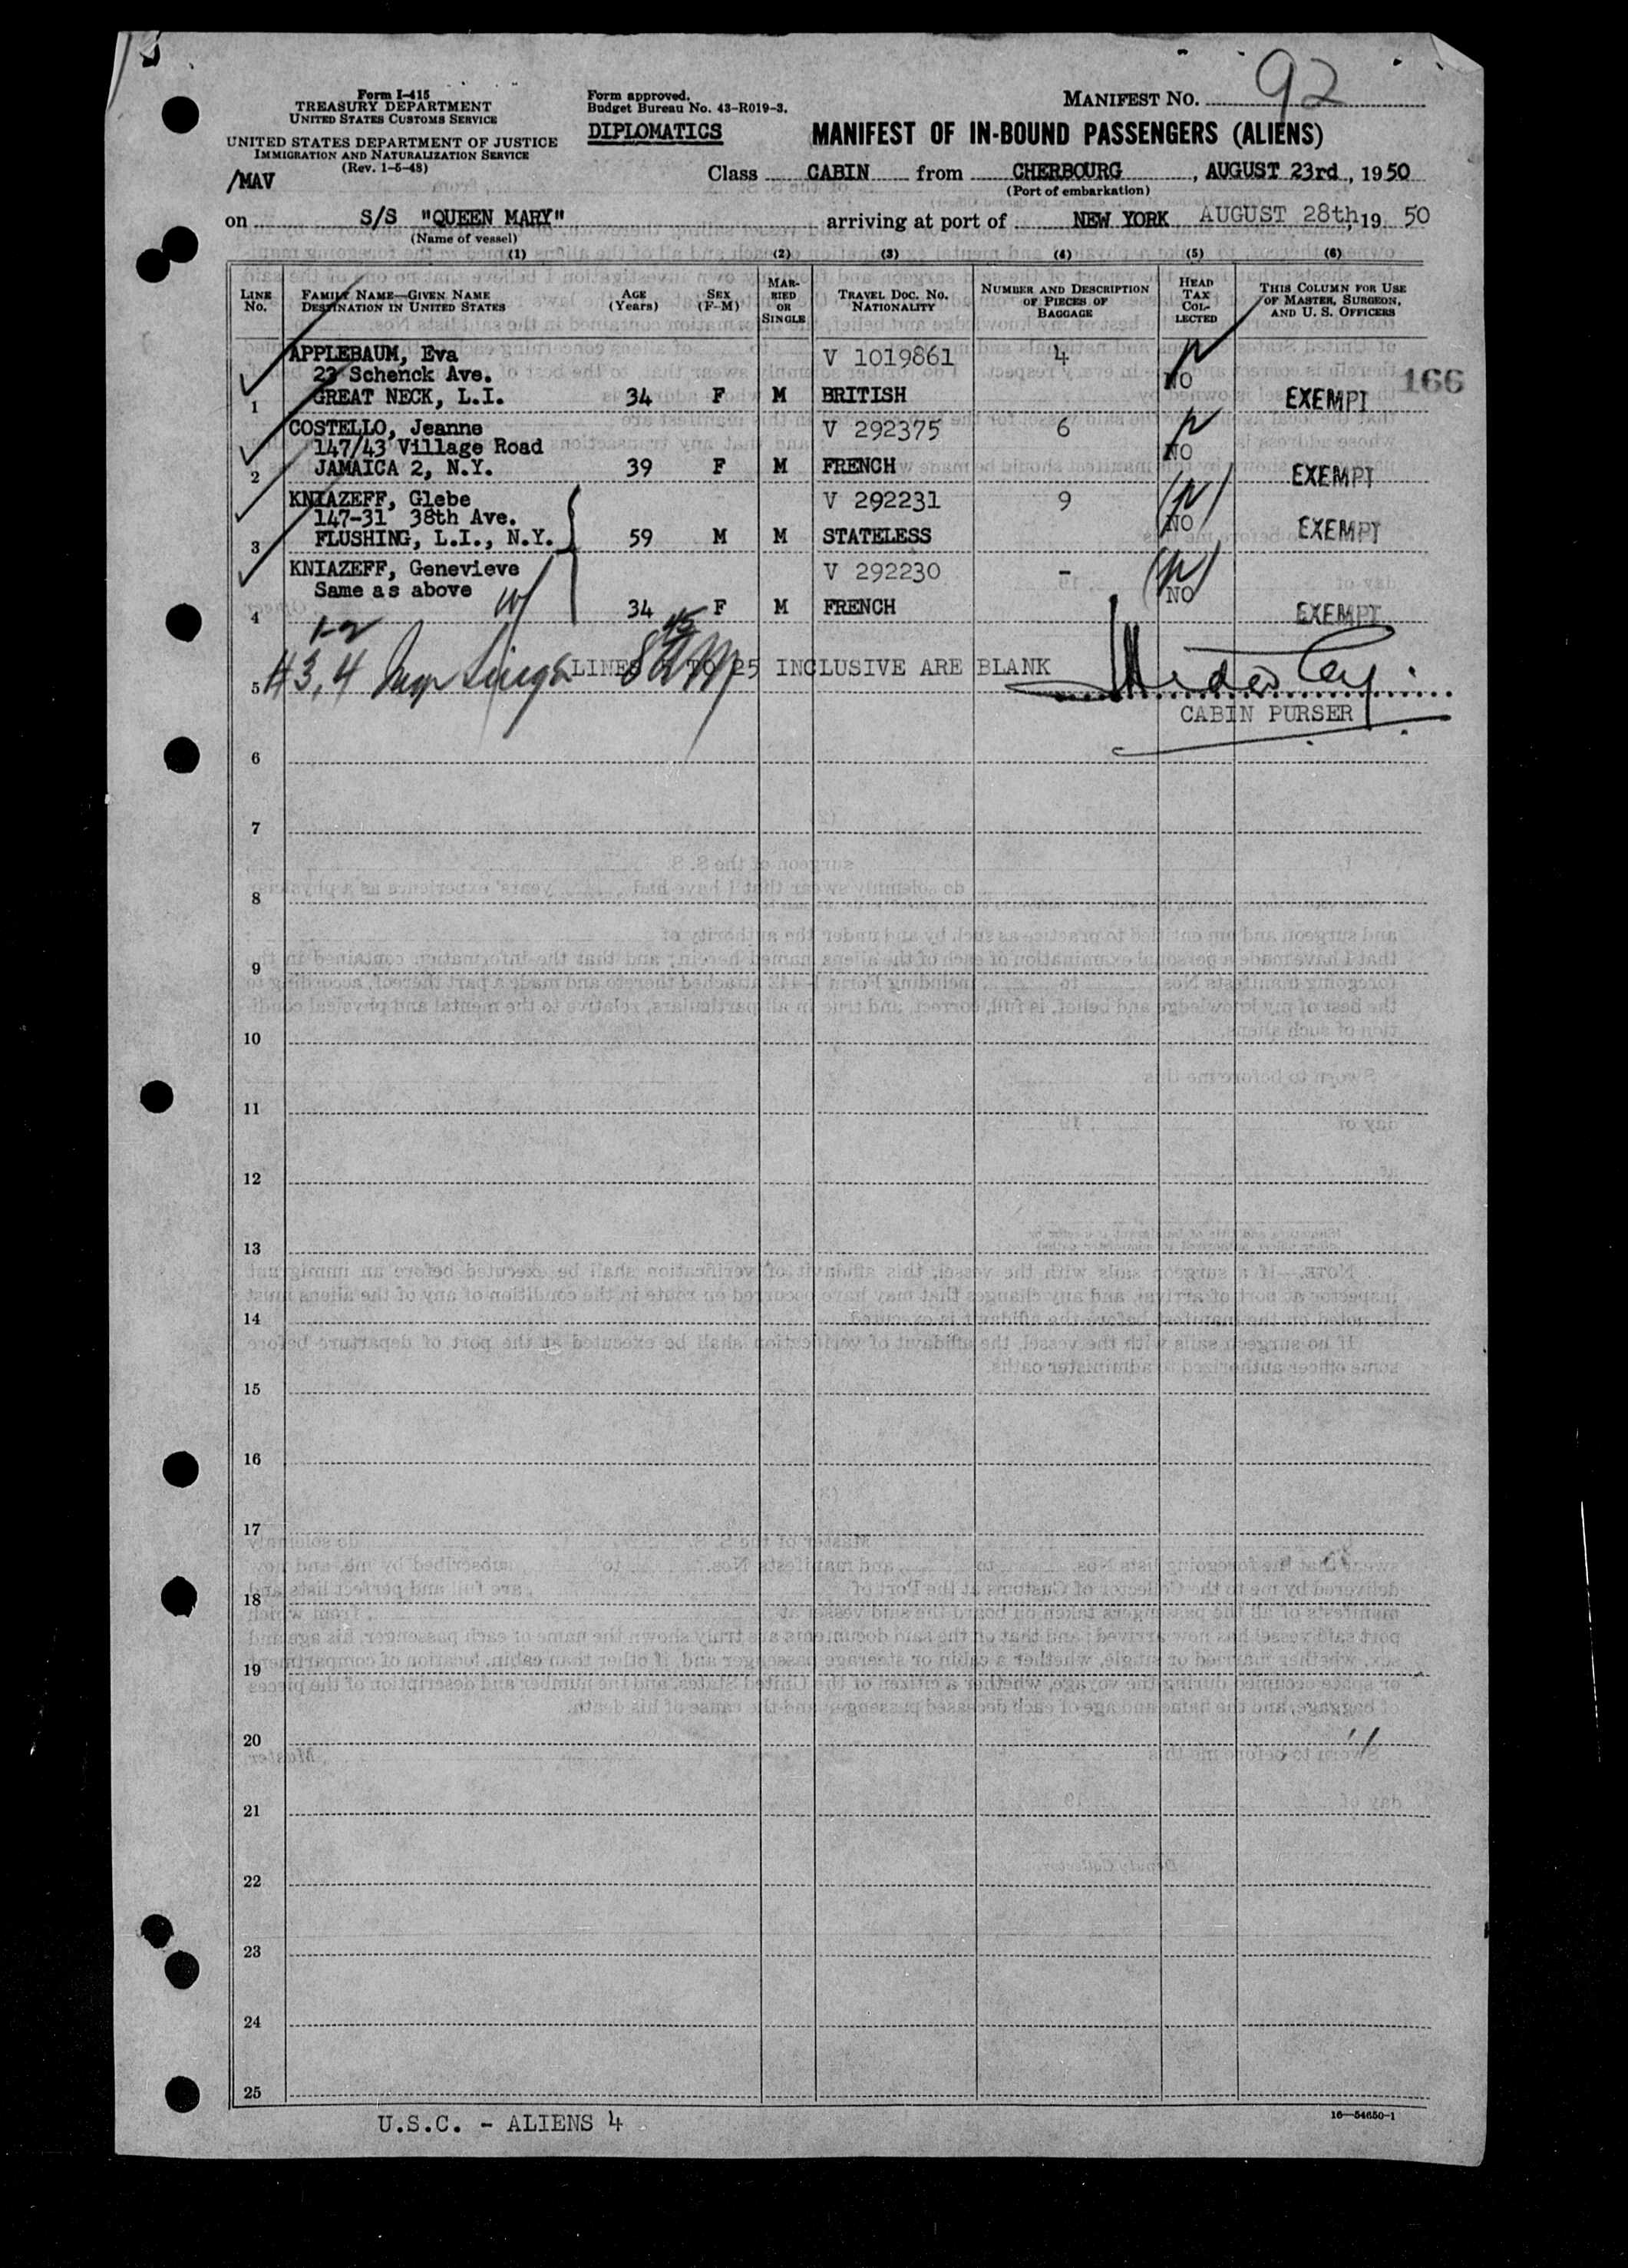 Form I-415
TREASURY DEPARTMENT
UNITED STATES CUSTOMS SERVICE
UNITED STATES DEPARTMENT OF JUSTICE
IMMIGRATION AND NATURALIZATION SERVICE
(Rev. 1-5-48)
/MAV
Form approved.
Budget Bureau No. 43-R019-3.
DIPLOMATICS
MANIFEST NO. 92
MANIFEST OF IN-BOUND PASSENGERS (ALIENS)
Class CABIN from CHERBOURG, AUGUST 23rd, 1950
(Port of embarkation)
on S/S "QUEEN MARY" arriving at port of NEW YORK AUGUST 28th, 19 50
(Name of vessel)
(1) (2) (3) (4) (5) (6)
LINE NO. FAMILY NAME—GIVEN NAME DESTINATION IN UNITED STATES AGE (Years) SEX (F-M) MARRIED OR SINGLE TRAVEL DOC. NO. NATIONALITY NUMBER AND DESCRIPTION OF PIECES OF BAGGAGE HEAD TAX COLLECTED THIS COLUMN FOR USE OF MASTER, SURGEON, AND U. S. OFFICERS
APPLEBAUM, Eva V 1019861 4
23 Schenck Ave. NO 166
1 GREAT NECK, L.I. 34 F M BRITISH EXEMPT
COSTELLO, Jeanne V 292375 6
147/43 Village Road NO
2 JAMAICA 2, N.Y. 39 F M FRENCH EXEMPT
KNIAZEFF, Glebe V 292231 9
147-31 38th Ave. NO
3 FLUSHING, L.I., N.Y. 59 M M STATELESS EXEMPT
KNIAZEFF, Genevieve V 292230 -
Same as above NO
4 34 F M FRENCH EXEMPT
1-2
#3,4
5 LINES TO 25 INCLUSIVE ARE BLANK
CABIN PURSER
6
7
8
9
10
11
12
13
14
15
16
17
18
19
20
21
22
23
24
25
U.S.C. - ALIENS 4
16—54650-1